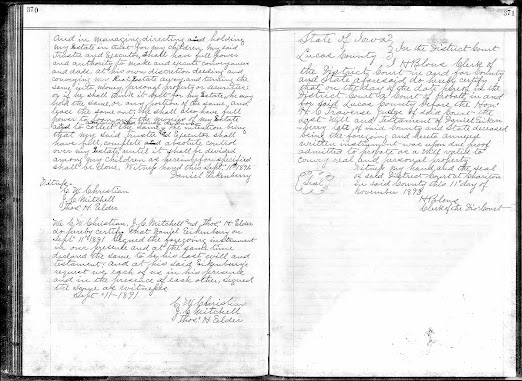 370
And in managing, directing and holding
my Estate in trust for my children, my said
Trustee and Executor shall have full power
and authority to make and execute conveyances
and date at his own discretion deeding and
conveying my Real Estate away, and turning the
same into money, personal property or securities
as if he shall think it best for my Estate, he may
hold the same, or any portion of the same, and
lease the same and he shall also have full
power to loan the moneys of my Estate
and to collect the same, the intention being
that my said Trustee and Executor shall
have full, complete and absolute control
over my Estate, until it shall be divided
among my children as hereinbefore specified
shall be done. Witness my hand this Sept 11th
Daniel Eikenberry
Witness
C W Christian
J C Mitchell
Thos. H. Elder
We C W Christian, J. C. Mitchell and Thos. H. Elder
do hereby certify that Daniel Eikenberry on
Sept 11th 1891 signed the foregoing instrument
in our presence and at the same time
declared the same to be his last will and
testament, and at his said Eikenberry's
request we, each of us in his presence
and in the presence of each other, signed
the same as witnesses
Sept 11-1891.
C W Christian
J. C. Mitchell
Thos. H. Elder
371
State of Iowa
Lucas County } In the District Court
I H H Clerk of
the District Court in and for County
and State aforesaid, do hereby certify
that on the day of in the
District Court a Court of probate in and
for said Lucas County before the Hon
H C Traverse Judge of said Court the
last Will and testament of Daniel Eiken-
berry late of said County and State deceased
being the foregoing and hereto annexed
written instrument was upon due proof
admitted to probate as a will valid to
convey real and personal property
Witness my hand and the seal
of said District Court at Chariton
in said County this 11th day of
November 189
Seal
H H
Clerk of the Dis Court